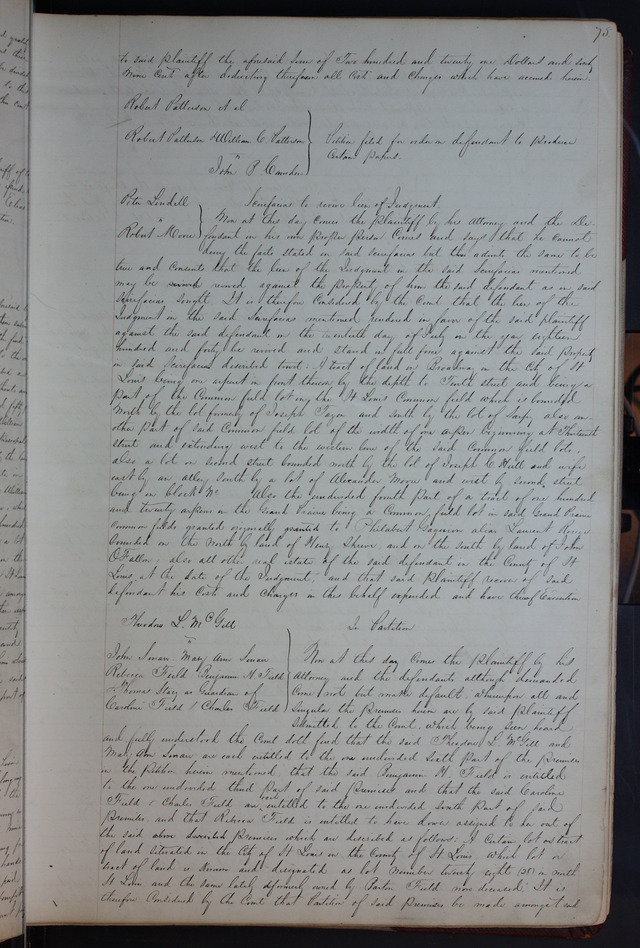 73
to said plaintiff the aforesaid sum of Two hundred and twenty one Dollars and sixty
nine Cents after deducting therefrom all Costs and Charges which have accrued herein.
Robert Patterson et al
Robert Patterson & William C. Patterson
Petition filed for order on defendant to produce
Certain Papers.
"
John P. Camden
Peter Lindell
Scirefacias to revive lien of Judgment.
"
Now at this day comes the plaintiff by his attorney and the De-
Robert Moore
fendant in his own proper person Comes and says that he cannot
deny the facts stated in said Scirefacias but admits the same to be
true and Consents that the lien of the Judgment in the said Scirefacias mentioned
may be revived against the property of him the said defendant as in said
Scirefacias sought. It is therefore Considered by the Court that the lien of the
Judgment in the said Scirefacias mentioned rendered in favor of the said plaintiff
against the said defendant on the twentieth day of July in the year eighteen
hundred and forty be revived and stand in full force against the said Property
in said Scirefacias described towit. A tract of land on Broadway in the City of St
Louis being one arpent in front thereon by the depth to Tenth street and being a
part of the Common field lot in the St Louis Common field which is bounded
North by the lot formerly of Joseph and south by the lot of also an-
other part of said Common field lot of the width of one arpen beginning at Thirteenth
street and extending west to the western line of the said Common field lots.
also a lot on second street bounded north by the lot of Joseph C. and wife
east by an alley south by a lot of Alexander Moore and west by second street
being in block No Also the undivided fourth part of a tract of one hundred
and twenty arpens in the Grand Prairie being a Common field lot in said Grand Prairie
common fields granted originally to Philabert Gagnion alias Laurent
bounded on the North by land of Henry Shreve and on the south by land of John
O'Fallon, also all other real estate of the said defendant in the County of St
Louis at the date of the Judgment, and that said plaintiff recover of said
defendant his Costs and Charges in this behalf expended and have thereof Execution
Theodore L. McGill
In Partition
"
John Mary Ann
Now at this day Comes the plaintiff by his
Rebecca Field Benjamin H. Field
attorney and the defendants although demanded
Thomas Gray as Guardian of
Come not but make default. Whereupon all and
Caroline Field & Charles Field
Singular the Premises herein are by said plaintiff
Submitted to the Court. Which being seen heard
and fully understood the Court doth find that the said Theodore L. McGill and
Mary Ann are each entitled to the one undivided Sixth Part of the Premises
in the Petition herein mentioned, that the said Benjamin H. Field is entitled
to the one undivided third part of said Premises and that the said Caroline
Field & Charles Field are each entitled to the one undivided Part of said
Premises and that Rebecca Field is entitled to have dower assigned to her out of
the said above described Premises which are described as follows: A Certain lot or tract
of land situated in the City of St Louis in the County of St Louis. Which lot or
tract of land is known and designated as lot number twenty eight (28) in north
St Louis and the same lately owned by Field now deceased. It is
therefore Considered by the Court that Partition of said Premises be made amongst and